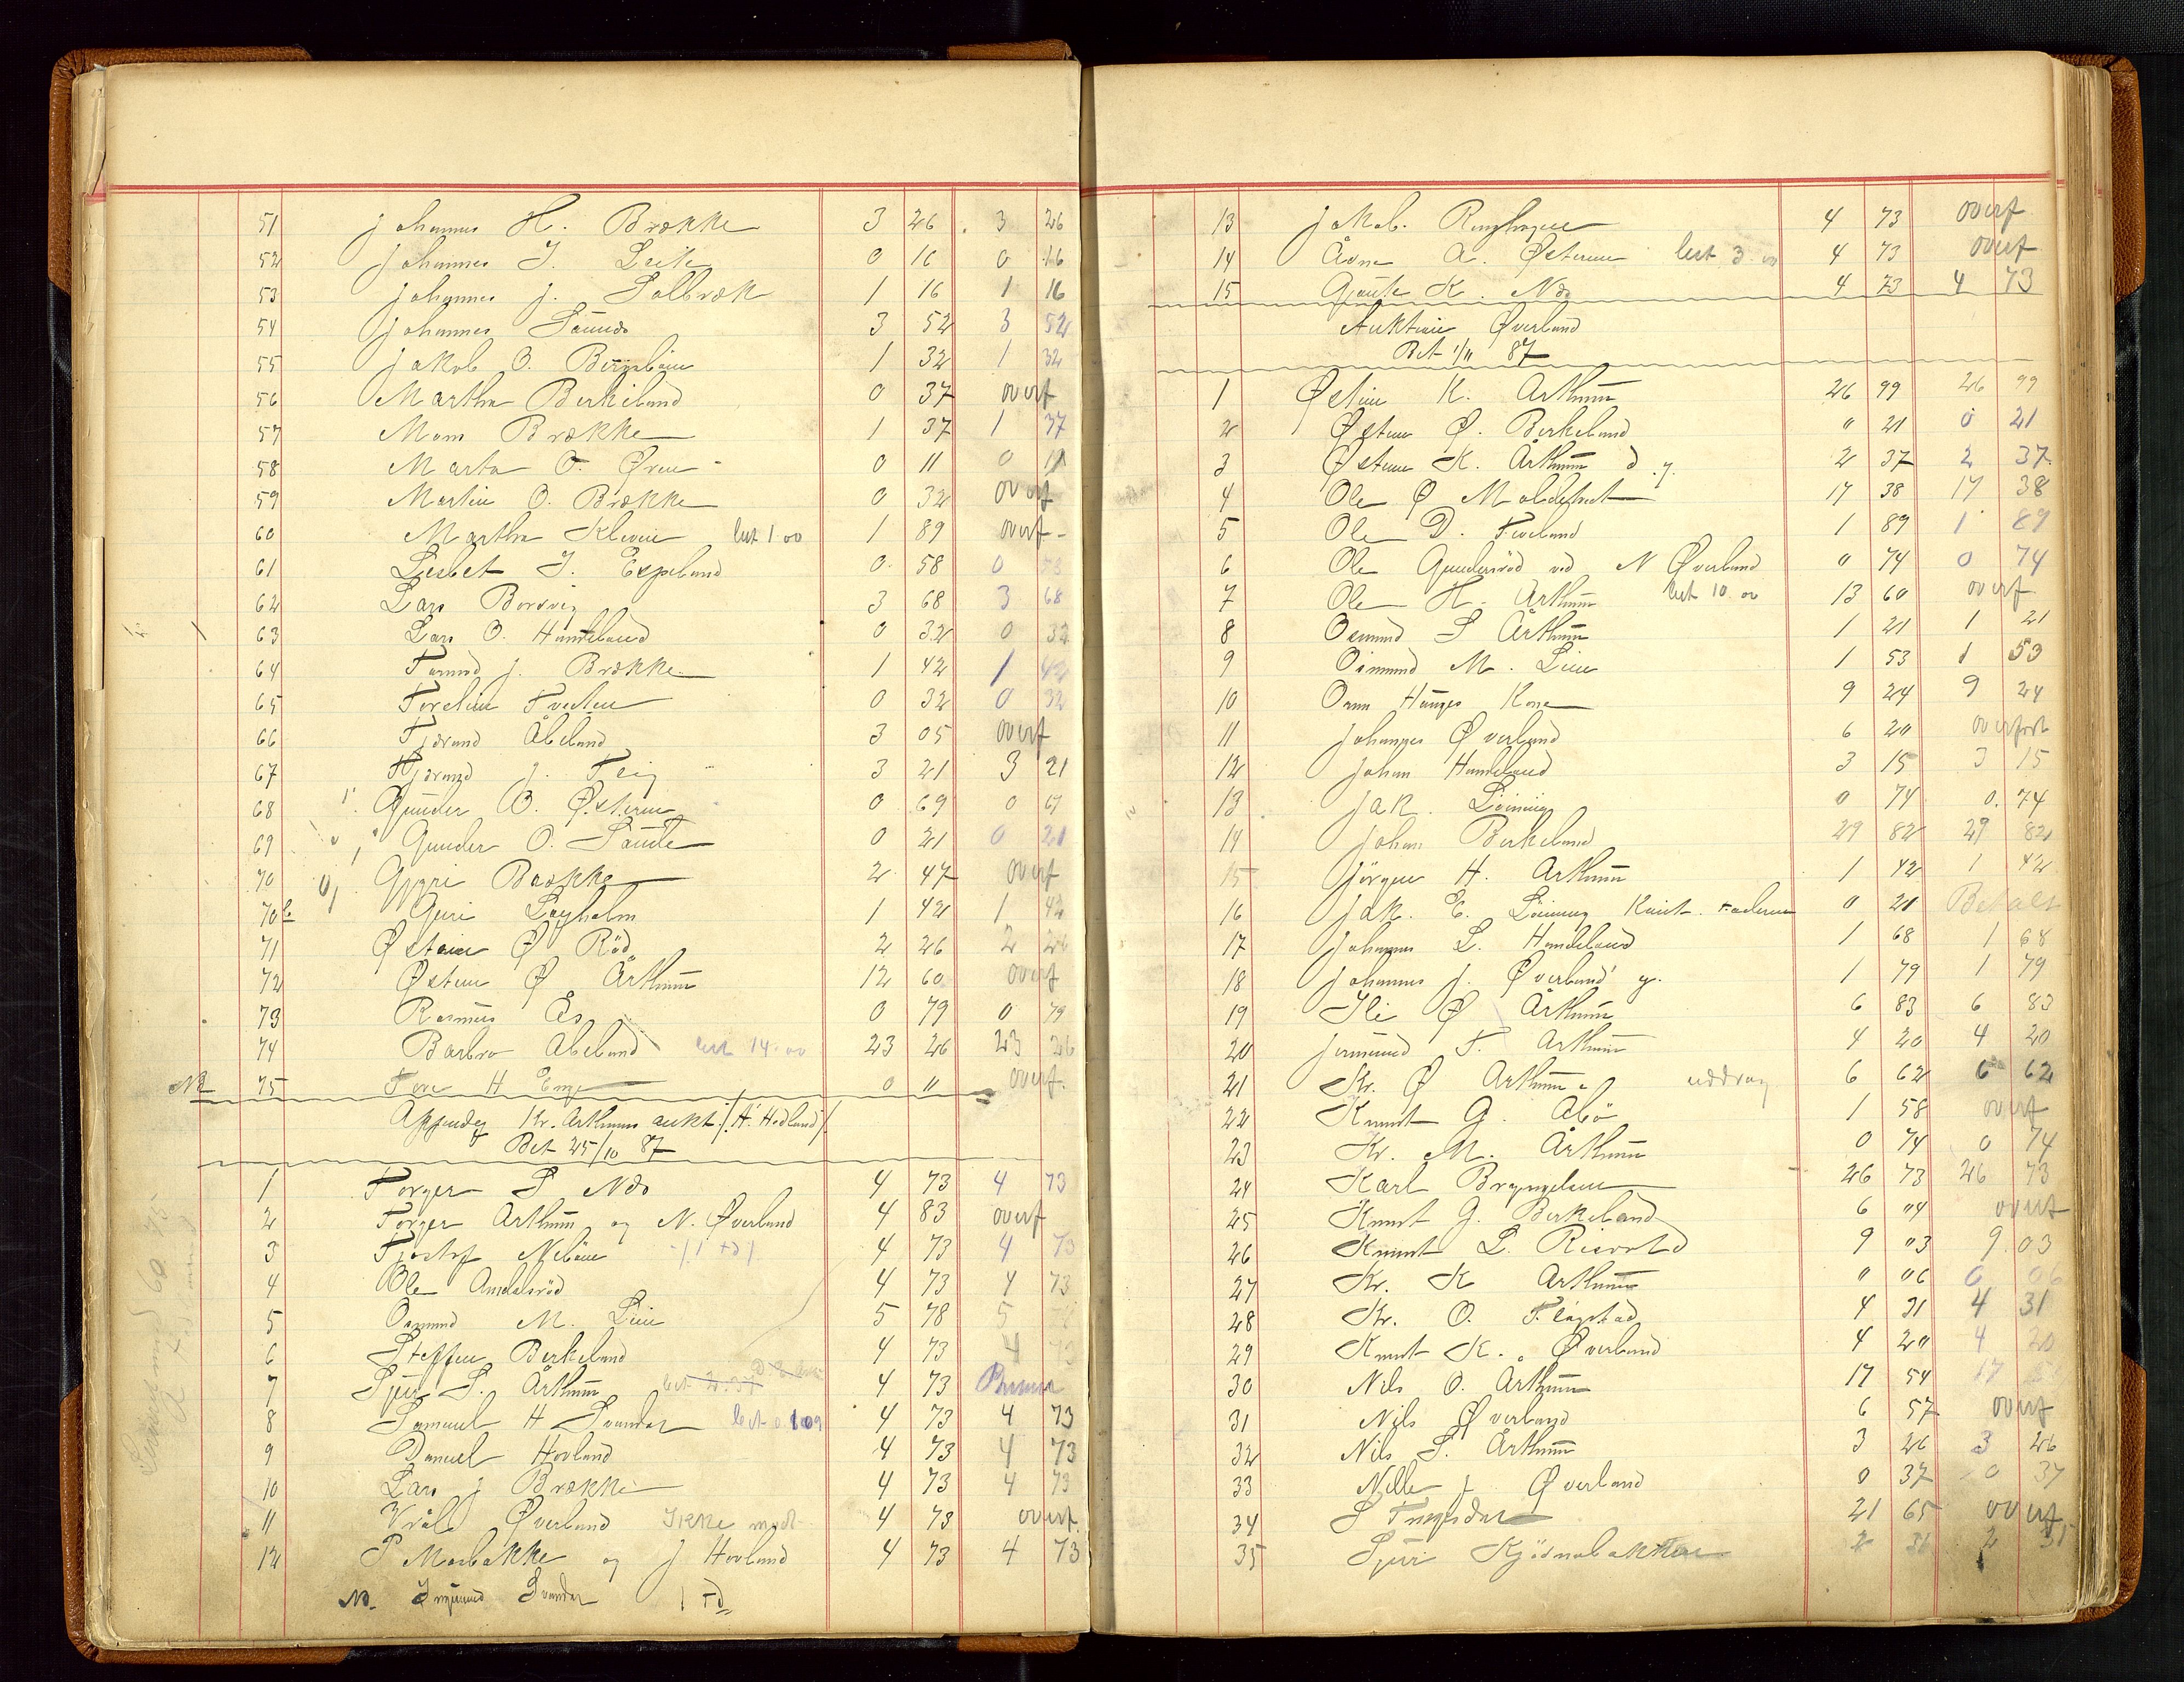 51 Johannes H. Brække 3 26 3 26
52 Johannes J. 0 16 0 16
53 Johannes J. Solbræk 1 16 1 16
54 Johannes 3 52 3 52
55 Jakob O. 1 32 1 32
56 Martha Birkeland 0 37 overf
57 Mons Brække 1 37 1 37
58 Marta O. Øren 0 11 0 11
59 Martin O. Brække 0 32 overf
60 Martha Kleven bet 1.00 1 89 overf
61 Lisbet J. Espeland 0 58 0 58
62 Lars Borsvig 3 68 3 68
63 Lars O. Handeland 0 32 0 32
64 J. Brække 1 42 1 42
65 Tveden 0 32 0 32
66 Åbeland 3 05 overf
67 J. Teig 3 21 3 21
68 Gunder O. Østeren 0 69 0 69
69 Gunder O. Sande 0 21 0 21
70 Gyri Brække 2 47 overf
70b Guri Løyholm 1 42 1 42
71 Østein Ø Röd 2 26 2 26
72 Østen Ø Årthun 12 60 overf
73 Rasmus Ås 0 79 0 79
74 Barbro Åbeland bet 14.00 23 26 23 26
NB 75 Tore H Enge 0 11 overf.
Appendex Kr. Arthuns aukt /: H. Hedland :/
Bet 25/10 87
1 Torger S Næs 4 73 4 73
2 Torger Årthun og N. Øverland 4 83 overf
3 Tjostof 4 73 4 73
4 Ole Amdalsröd 4 73 4 73
5 Osmund M. Lien 5 78 5 78
6 Steffen Berkeland 4 73 4 73
7 Sjur S. Årthun bet 2.37 4 73
8 Samuel H Svandal bet 4 73 4 73
9 Daniel Hovland 4 73 4 73
10 Lars J Brække 4 73 4 73
11 Øverland Ikke 4 73 overf.
12 P Mosbakke og J Hovland 4 73 4 73
Svandal 1 Td
13 Jakob 4 73 overf
14 A. Østeren bet 3.00 4 73 overf
15 Gjaute K. Næs 4 73 4 73
Auktion Øverland
Bet 1/11 87
1 Østen K. Arthun 26 99 26 99
2 Østen Ø. Berkeland " 21 0 21
3 Østen K. Årthun d.y. 2 37 2 37
4 Ole Ø 17 38 17 38
5 Ole D. 1 89 1 89
6 Ole ved N Øverland " 74 0 74
7 Ole H. Årthun bet 10.00 13 60 overf
8 Osmund S Årthun 1 21 1 21
9 Osmund M. Lien 1 53 1 53
10 Kone 9 24 9 24
11 Johannes Øverland 6 20 overfort
12 Johan Handeland 3 15 3 15
13 Jak. Löining 0 74 0. 74
14 Johan Berkeland 29 82 29 82
15 Jörgen H. Arthun 1 42 1 42
16 Jak. E. Löining Knut 0 21 Betalt
17 Johannes L. Handeland 1 68 1 68
18 Johannes J. Øverland y. 1 79 1 79
19 Ili Ø Årthun 6 83 6 83
20 Jermund T. Arthun 4 20 4 20
21 Kr. Ø Arthun uddrag 6 62 6 62
22 Knut G. Åbö 1 58 overf
23 Kr. M. Årthun 0 74 0 74
24 Karl Bryngelsen 26 73 26 73
25 Knut G. Berkeland 6 04 overf
26 Knut L. Risvold 9 03 9.03
27 Kr. K Arthun " 06 0 06
28 Kr. O. Flugstad 4 31 4 31
29 Knut K. Øverland 4 20 4 20
30 Nils O. Årthun 17 54 17
31 Nils Øverland 6 57 overf
32 Nils S. Årthun 3 26 3 26
33 Nille J Øverland 0 37 0 37
34 S 21 65 overf
35 Sjur Kjösnabakken 2 2